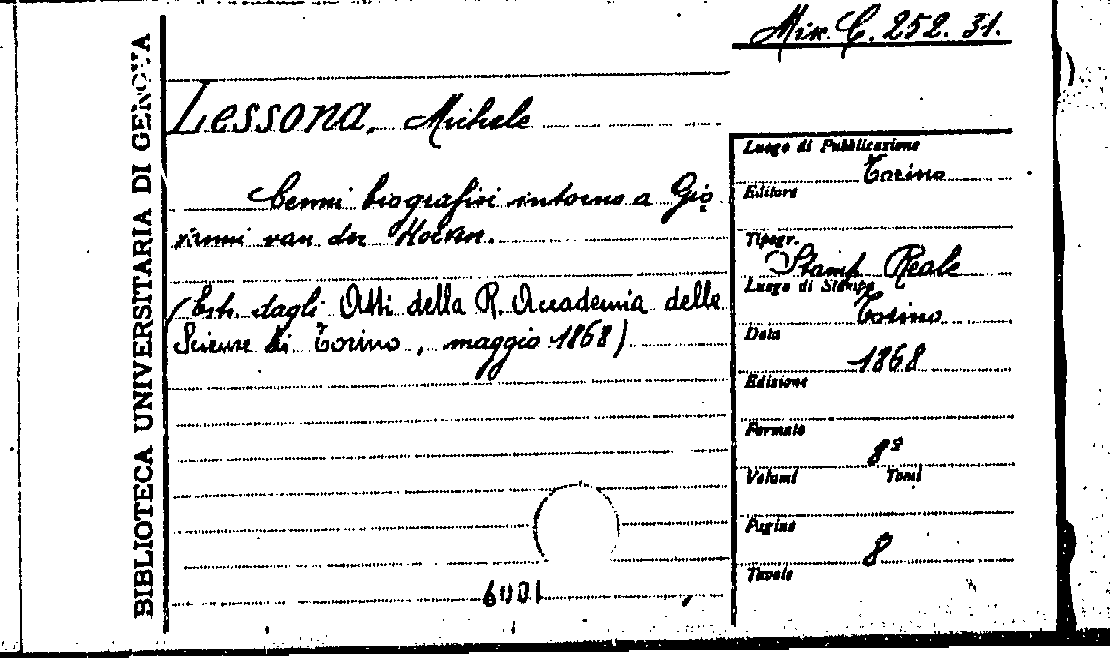 BIBLIOTECA UNIVERSITARIA DI GENOVA
Mis. C. 252. 31.
Lessona, Michele
Cenni biografici intorno a Gio
vanni van der Hoeven.
(Estr. dagli Atti della R. Accademia delle
Scienze di Torino, maggio 1868)
Luogo di Pubblicazione
Torino
Editore
Tipogr.
Stamp. Reale
Luogo di Stampa
Torino
Data
1868
Edizione
Formato
8º
Volumi Tomi
Pagine
8
Tavole
6001